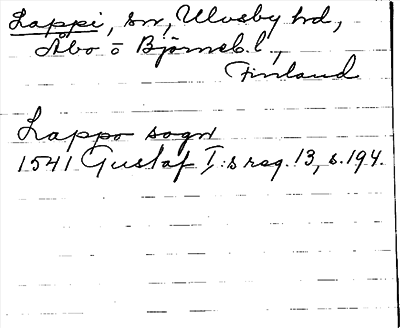 Lappi, sn, Ulvsby hd,
Åbo o Björneb. l.,
Finland
Lappo sogn
1541 Gustaf I:s reg. 13, s. 194.